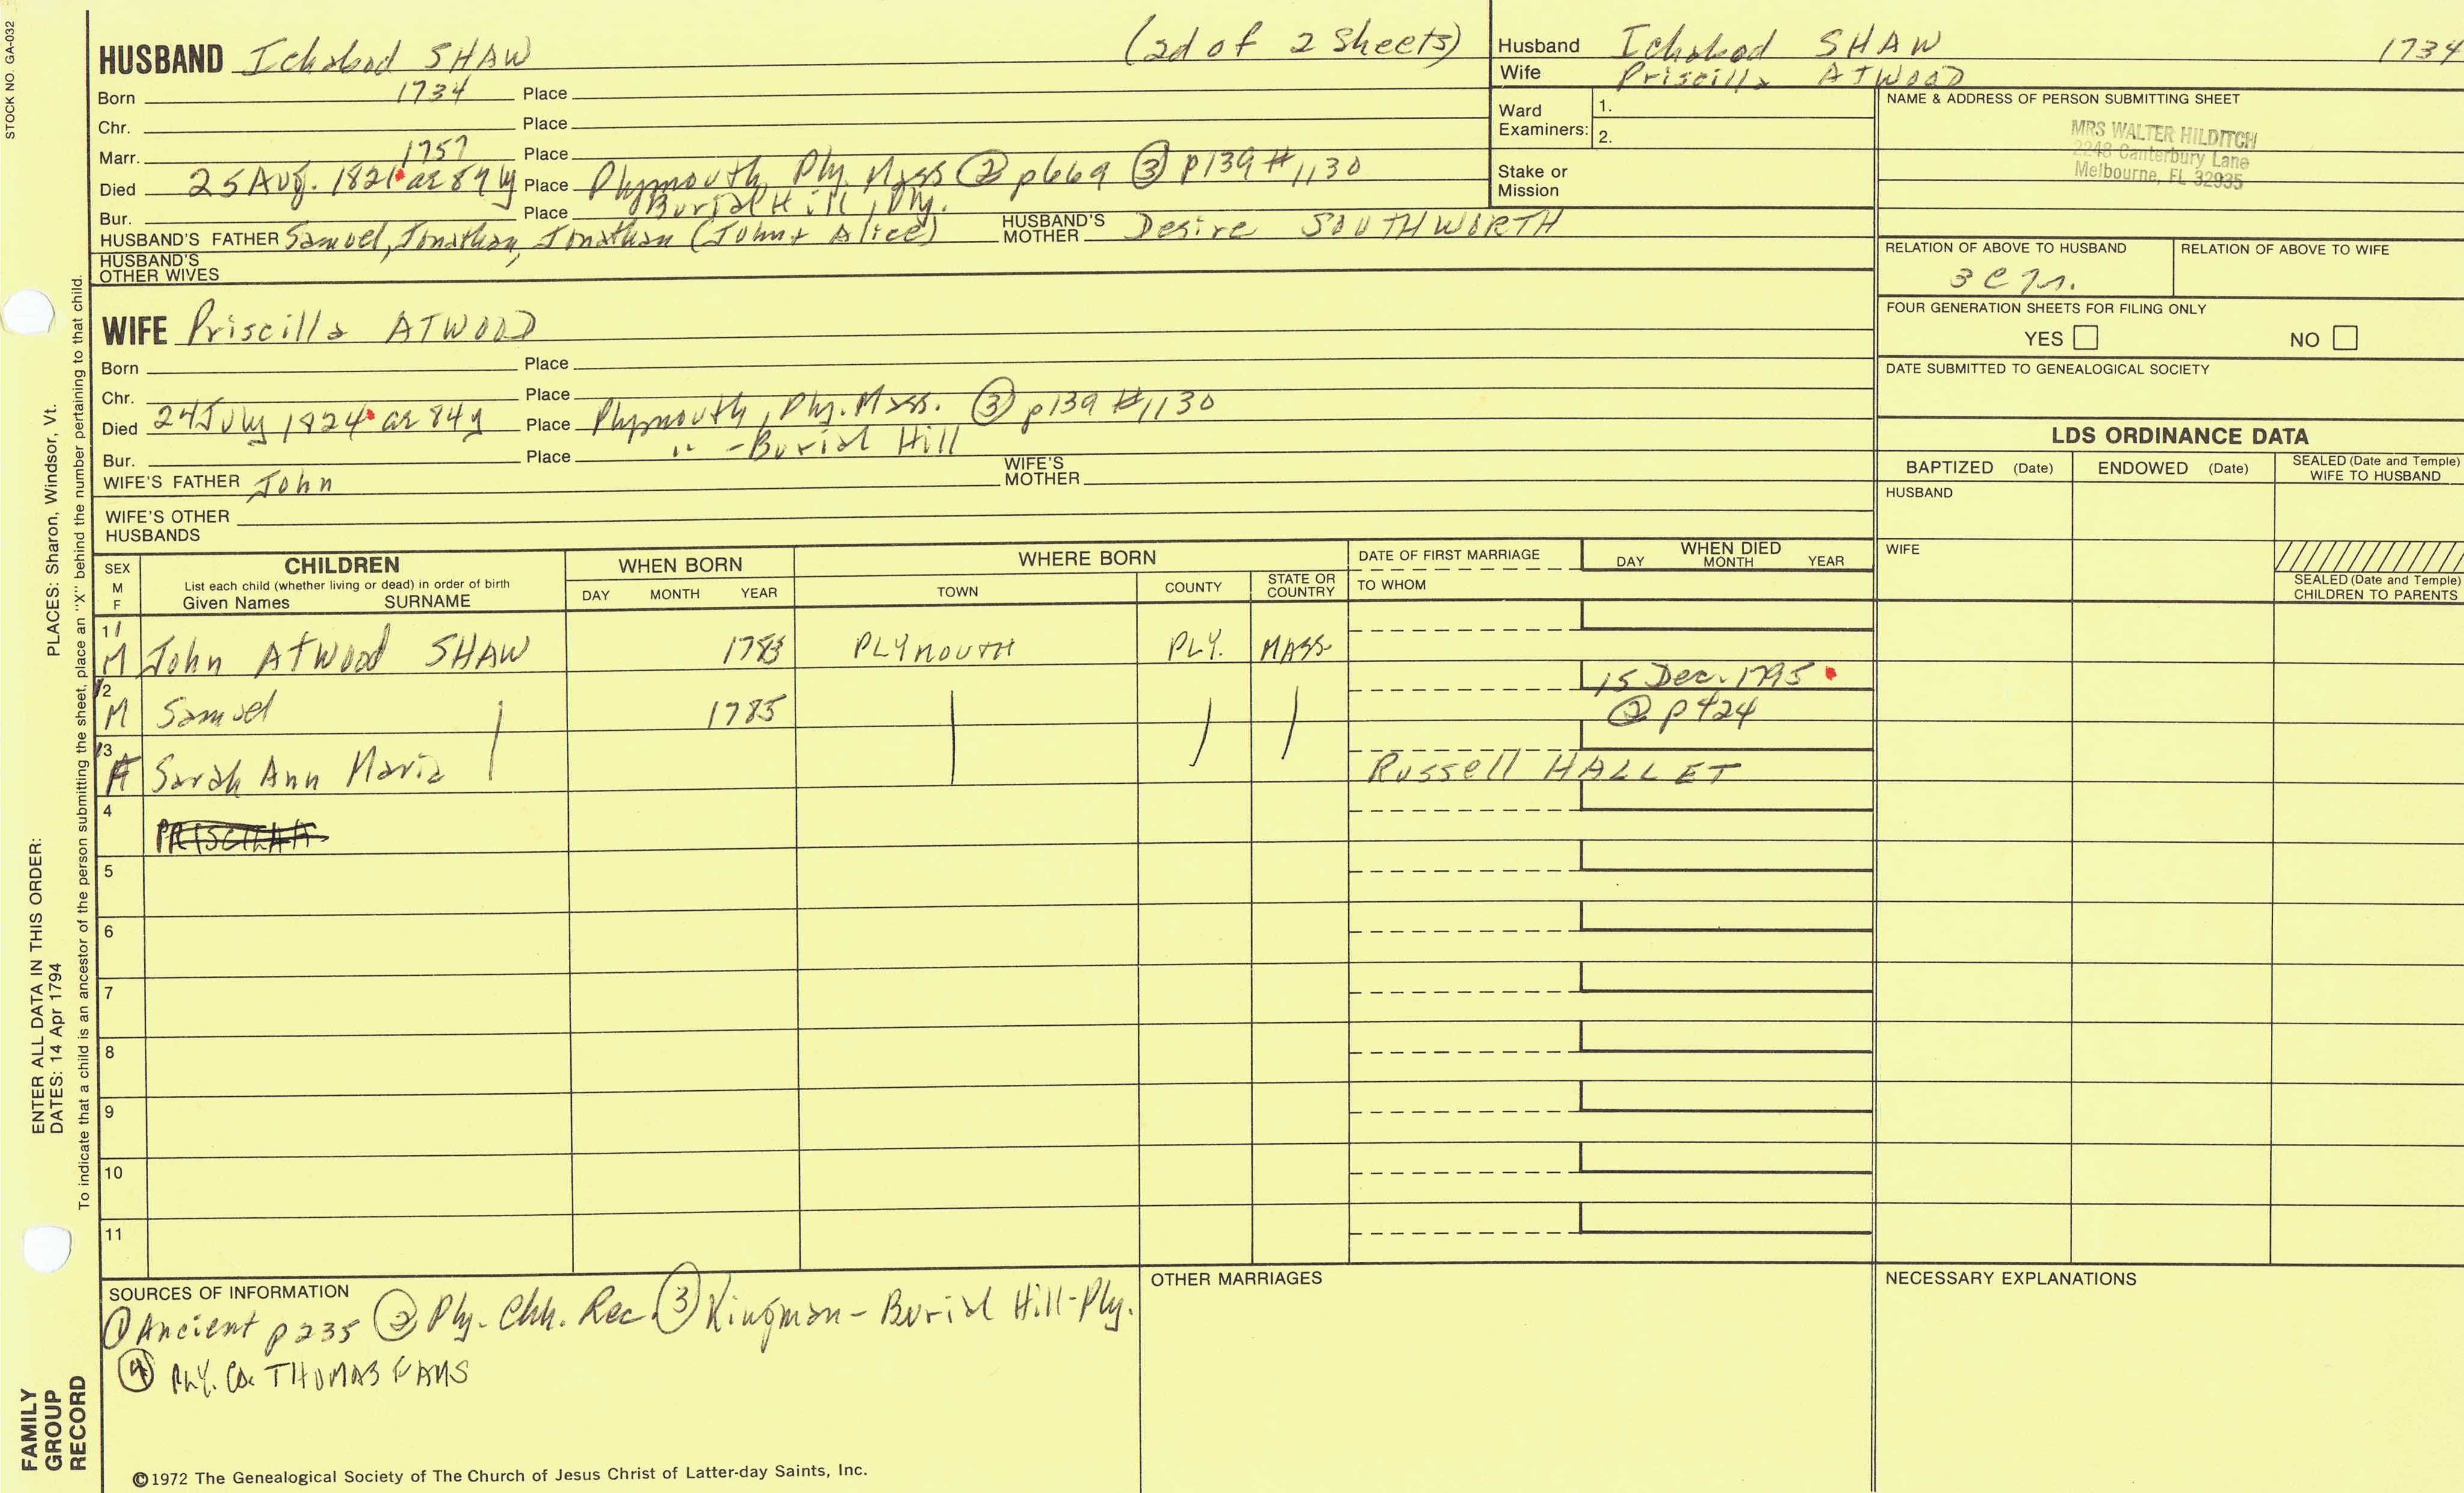 STOCK NO. GA-032
HUSBAND Ichabod SHAW (2d of 2 Sheets)
Born 1734 Place
Chr. Place
Marr. 1757 Place
Died 25 Aug. 1821 ae 87 y Place Plymouth, Ply. Mass ② p669 ③ p139 #1130
Bur. Place Burial Hill, Ply.
HUSBAND'S FATHER Samuel, Jonathan, Jonathan (John + Alice) HUSBAND'S MOTHER Desire SOUTHWORTH
HUSBAND'S OTHER WIVES
WIFE Priscilla ATWOOD
Born Place
Chr. Place
Died 24 July 1824 ae 84 y Place Plymouth, Ply. Mass. ③ p139 #1130
Bur. Place " - Burial Hill
WIFE'S FATHER John WIFE'S MOTHER
WIFE'S OTHER HUSBANDS
Husband Ichabod SHAW 1734
Wife Priscilla ATWOOD
Ward Examiners: 1.
2.
Stake or Mission
NAME & ADDRESS OF PERSON SUBMITTING SHEET
MRS WALTER HILDITCH
2248 Canterbury Lane
Melbourne, FL 32935
RELATION OF ABOVE TO HUSBAND RELATION OF ABOVE TO WIFE
FOUR GENERATION SHEETS FOR FILING ONLY
YES NO
DATE SUBMITTED TO GENEALOGICAL SOCIETY
LDS ORDINANCE DATA
BAPTIZED (Date) ENDOWED (Date) SEALED (Date and Temple) WIFE TO HUSBAND
HUSBAND
WIFE
SEALED (Date and Temple) CHILDREN TO PARENTS
SEX M F CHILDREN WHEN BORN WHERE BORN DATE OF FIRST MARRIAGE WHEN DIED
List each child (whether living or dead) in order of birth
Given Names SURNAME DAY MONTH YEAR TOWN COUNTY STATE OR COUNTRY TO WHOM DAY MONTH YEAR
11 M John Atwood SHAW 1783 PLYMOUTH PLY. MASS.
12 M Samuel 1785 15 Dec. 1795
② p424
13 F Sarah Ann Maria Russell HALLET
4 PRISCILLA
5
6
7
8
9
10
11
SOURCES OF INFORMATION
① Ancient p235 ② Ply. Chh. Rec. ③ Kingman - Burial Hill - Ply.
④ PLY. Co. THOMAS FAMS
OTHER MARRIAGES
NECESSARY EXPLANATIONS
©1972 The Genealogical Society of The Church of Jesus Christ of Latter-day Saints, Inc.
ENTER ALL DATA IN THIS ORDER:
DATES: 14 Apr 1794
PLACES: Sharon, Windsor, Vt.
To indicate that a child is an ancestor of the person submitting the sheet, place an "X" behind the number pertaining to that child.
FAMILY
GROUP
RECORD